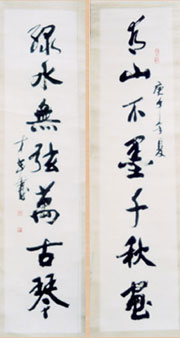 青山不墨千秋画
庚午年夏
綠水無弦萬古琴